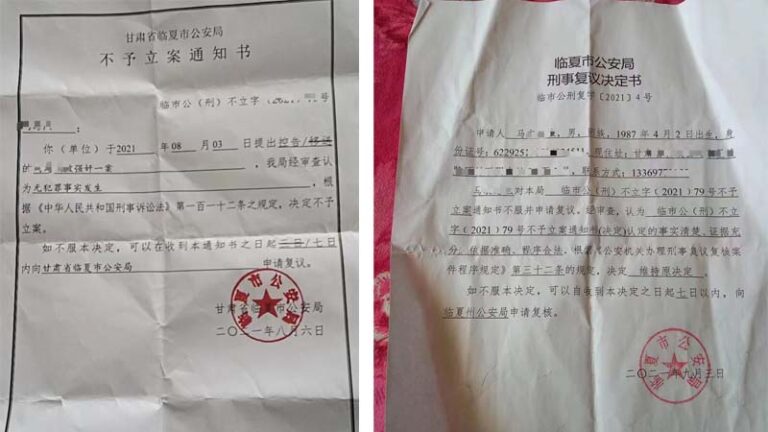 甘肃省临夏市公安局
不予立案通知书
临市公（刑）不立字 号
你（单位）于2021年08月03日提出控告/移送
的 被强奸一案，我局经审查认
为无犯罪事实发生，根
据《中华人民共和国刑事诉讼法》第一百一十二条之规定，决定不予
立案。
如不服本决定，可以在收到本通知书之日起三日/七日
内向甘肃省临夏市公安局 申请复议。
甘肃省临夏市公安局
二〇二一年八月六日
临夏市公安局
临夏市公安局
刑事复议决定书
临市公刑复字〔2021〕4号
申请人 马 ，男， 族，1987年4月2日出生，身
份证号：622925 ，现住址：甘肃
，联系方式：13369
对本局 临市公（刑）不立字（2021）79号不予
立案通知书不服并申请复议。经审查，认为 临市公（刑）不立
字（2021）79号不予立案通知书(决定)认定的事实清楚，证据充
分，依据准确，程序合法，根据《公安机关办理刑事复议复核案
件程序规定》第三十二条的规定，决定 维持原决定。
如不服本决定，可以自收到本决定之日起七日以内，向
临夏州公安局申请复核。
二〇二一年九月三日
临夏市公安局